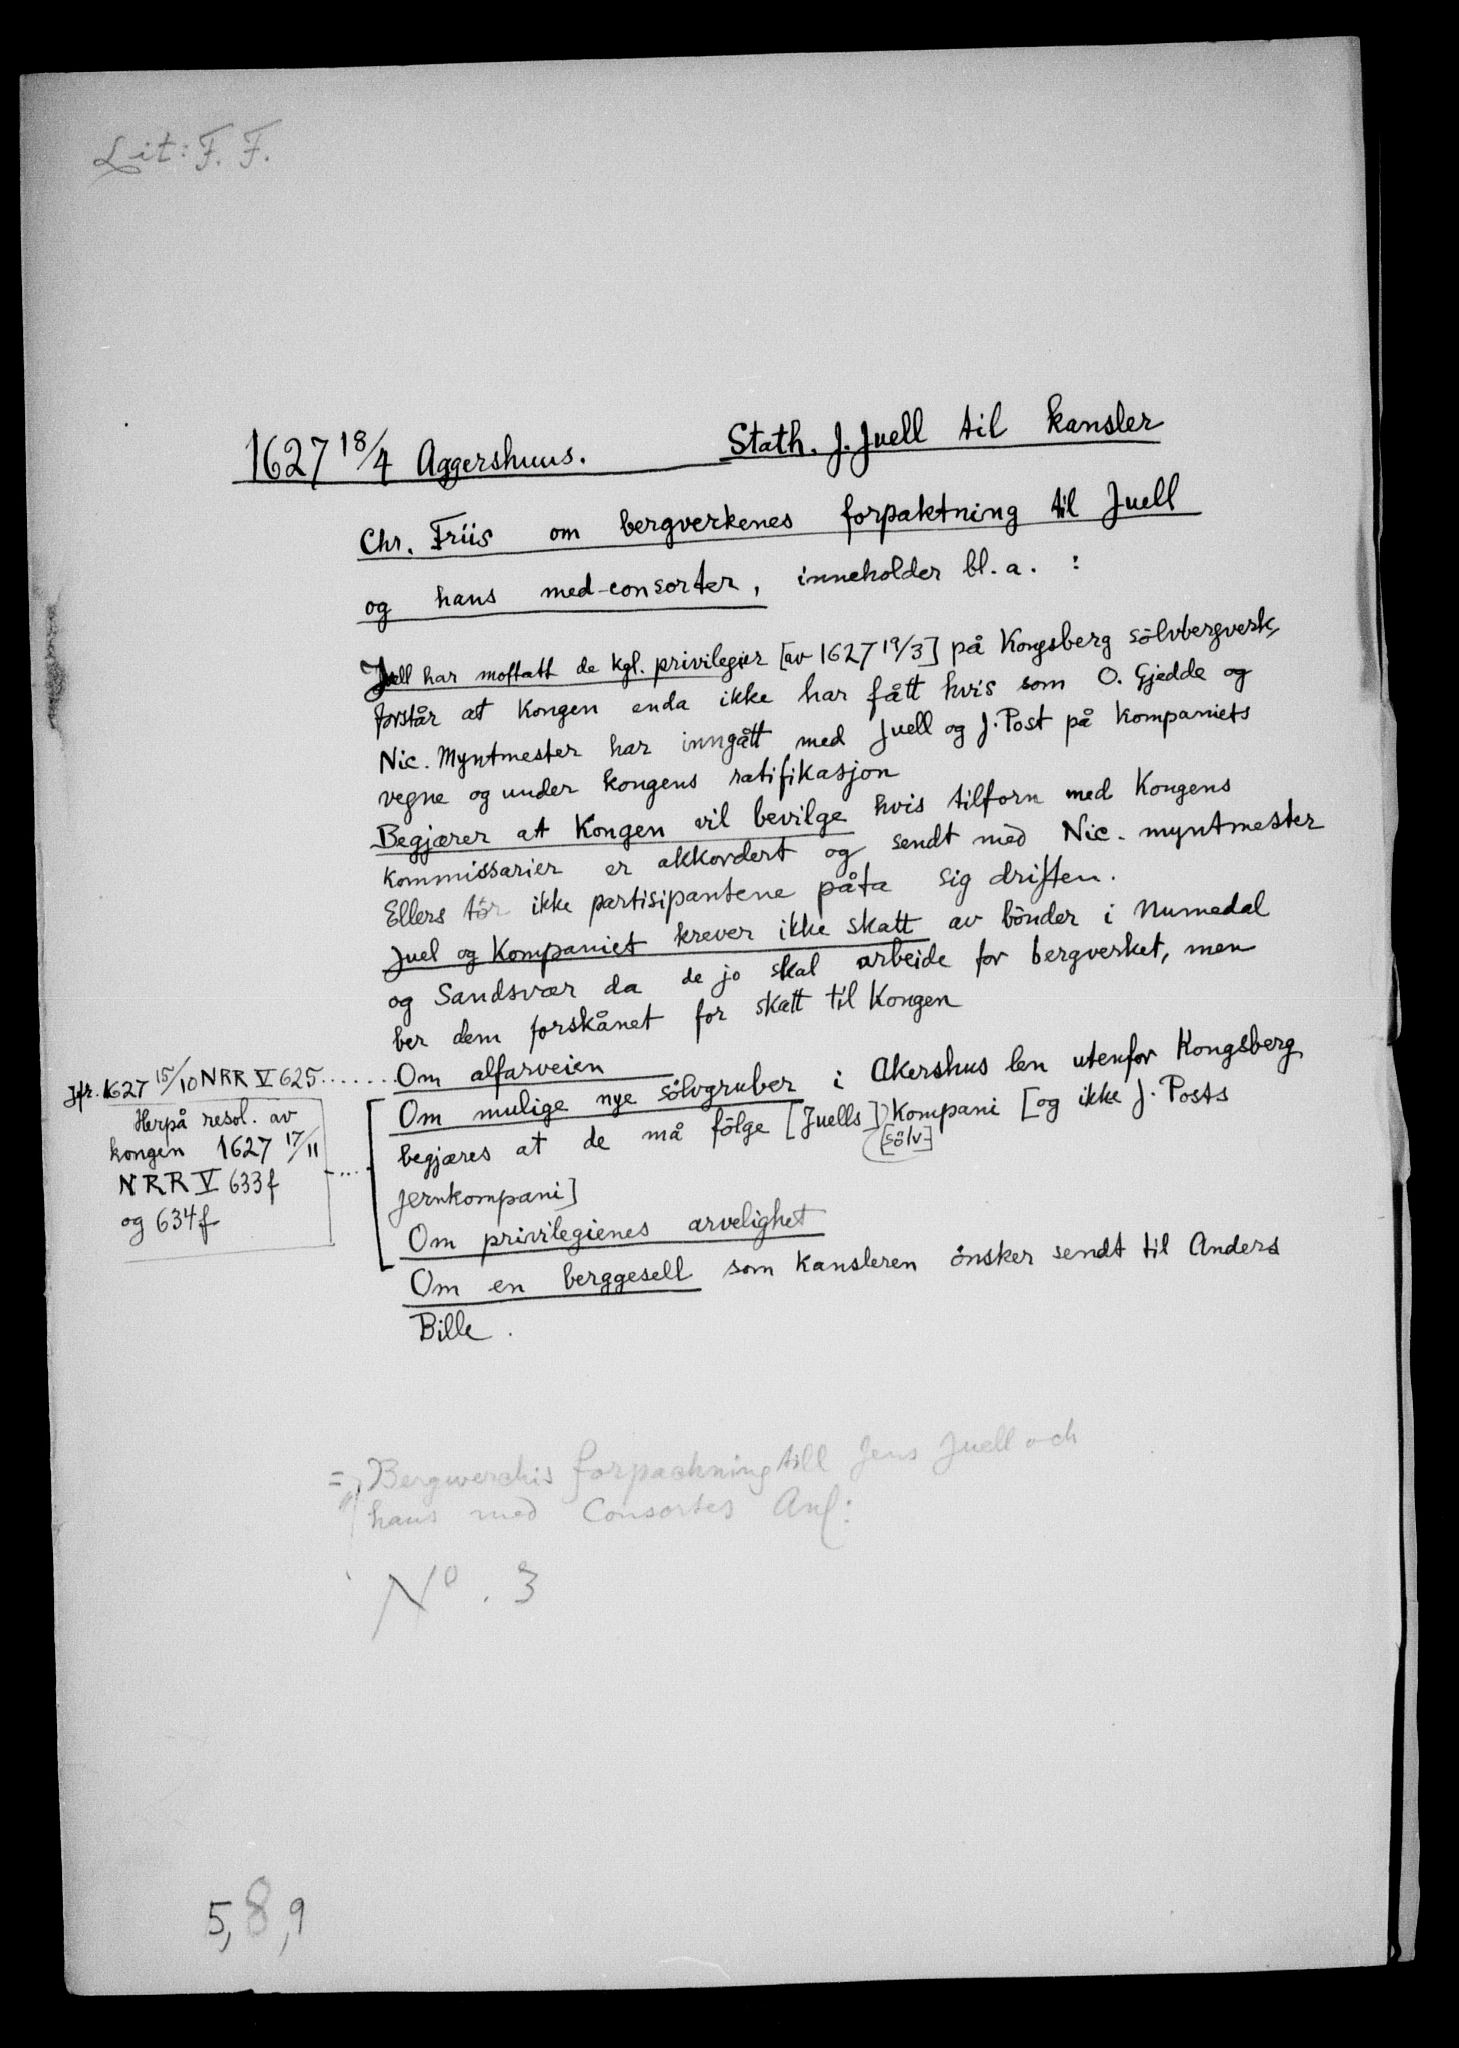 Lit: F. F.
1627 18/4 Aggershuus. Stath. J. Juell til kansler
Chr. Friis om bergverkenes forpaktning til Juell
og hans med-consorter, inneholder bl. a. :
Juell har mottatt de kgl. privilegier [av 1627 19/3] på Kongsberg sölvbergverk,
forstår at Kongen enda ikke har fått hvis som O. Gjedde og
Nic. Myntmester har inngått med Juell og J. Post på kompaniets
vegne og under kongens ratifikasjon
Begjærer at Kongen vil bevilge hvis tilforn med Kongens
kommissarier er akkordert og sendt med Nic. myntmester
Ellers tör ikke partisipantene påta sig driften.
Juel og Kompaniet krever ikke skatt av bönder i Numedal
og Sandsvær da de jo skal arbeide for bergverket, men
ber dem forskånet for skatt til Kongen
Jfr. 1627 15/10 NRR V 625 ....... Om alfarveien
Om mulige nye sölvgruber i Akershus len utenfor Kongsberg
begjæres at de må fölge [Juells] Kompani [og ikke J. Posts
[sölv-]
jernkompani]
Herpå resol. av
kongen 1627 17/11
NRR V 633f
og 634f
Om privilegienes arvelighet
Om en berggesell som kansleren önsker sendt til Anders
Bille.
= Bergwerchis forpachning till Jens Juell och
hans med Consortes Anl:
No. 3
5, 8, 9